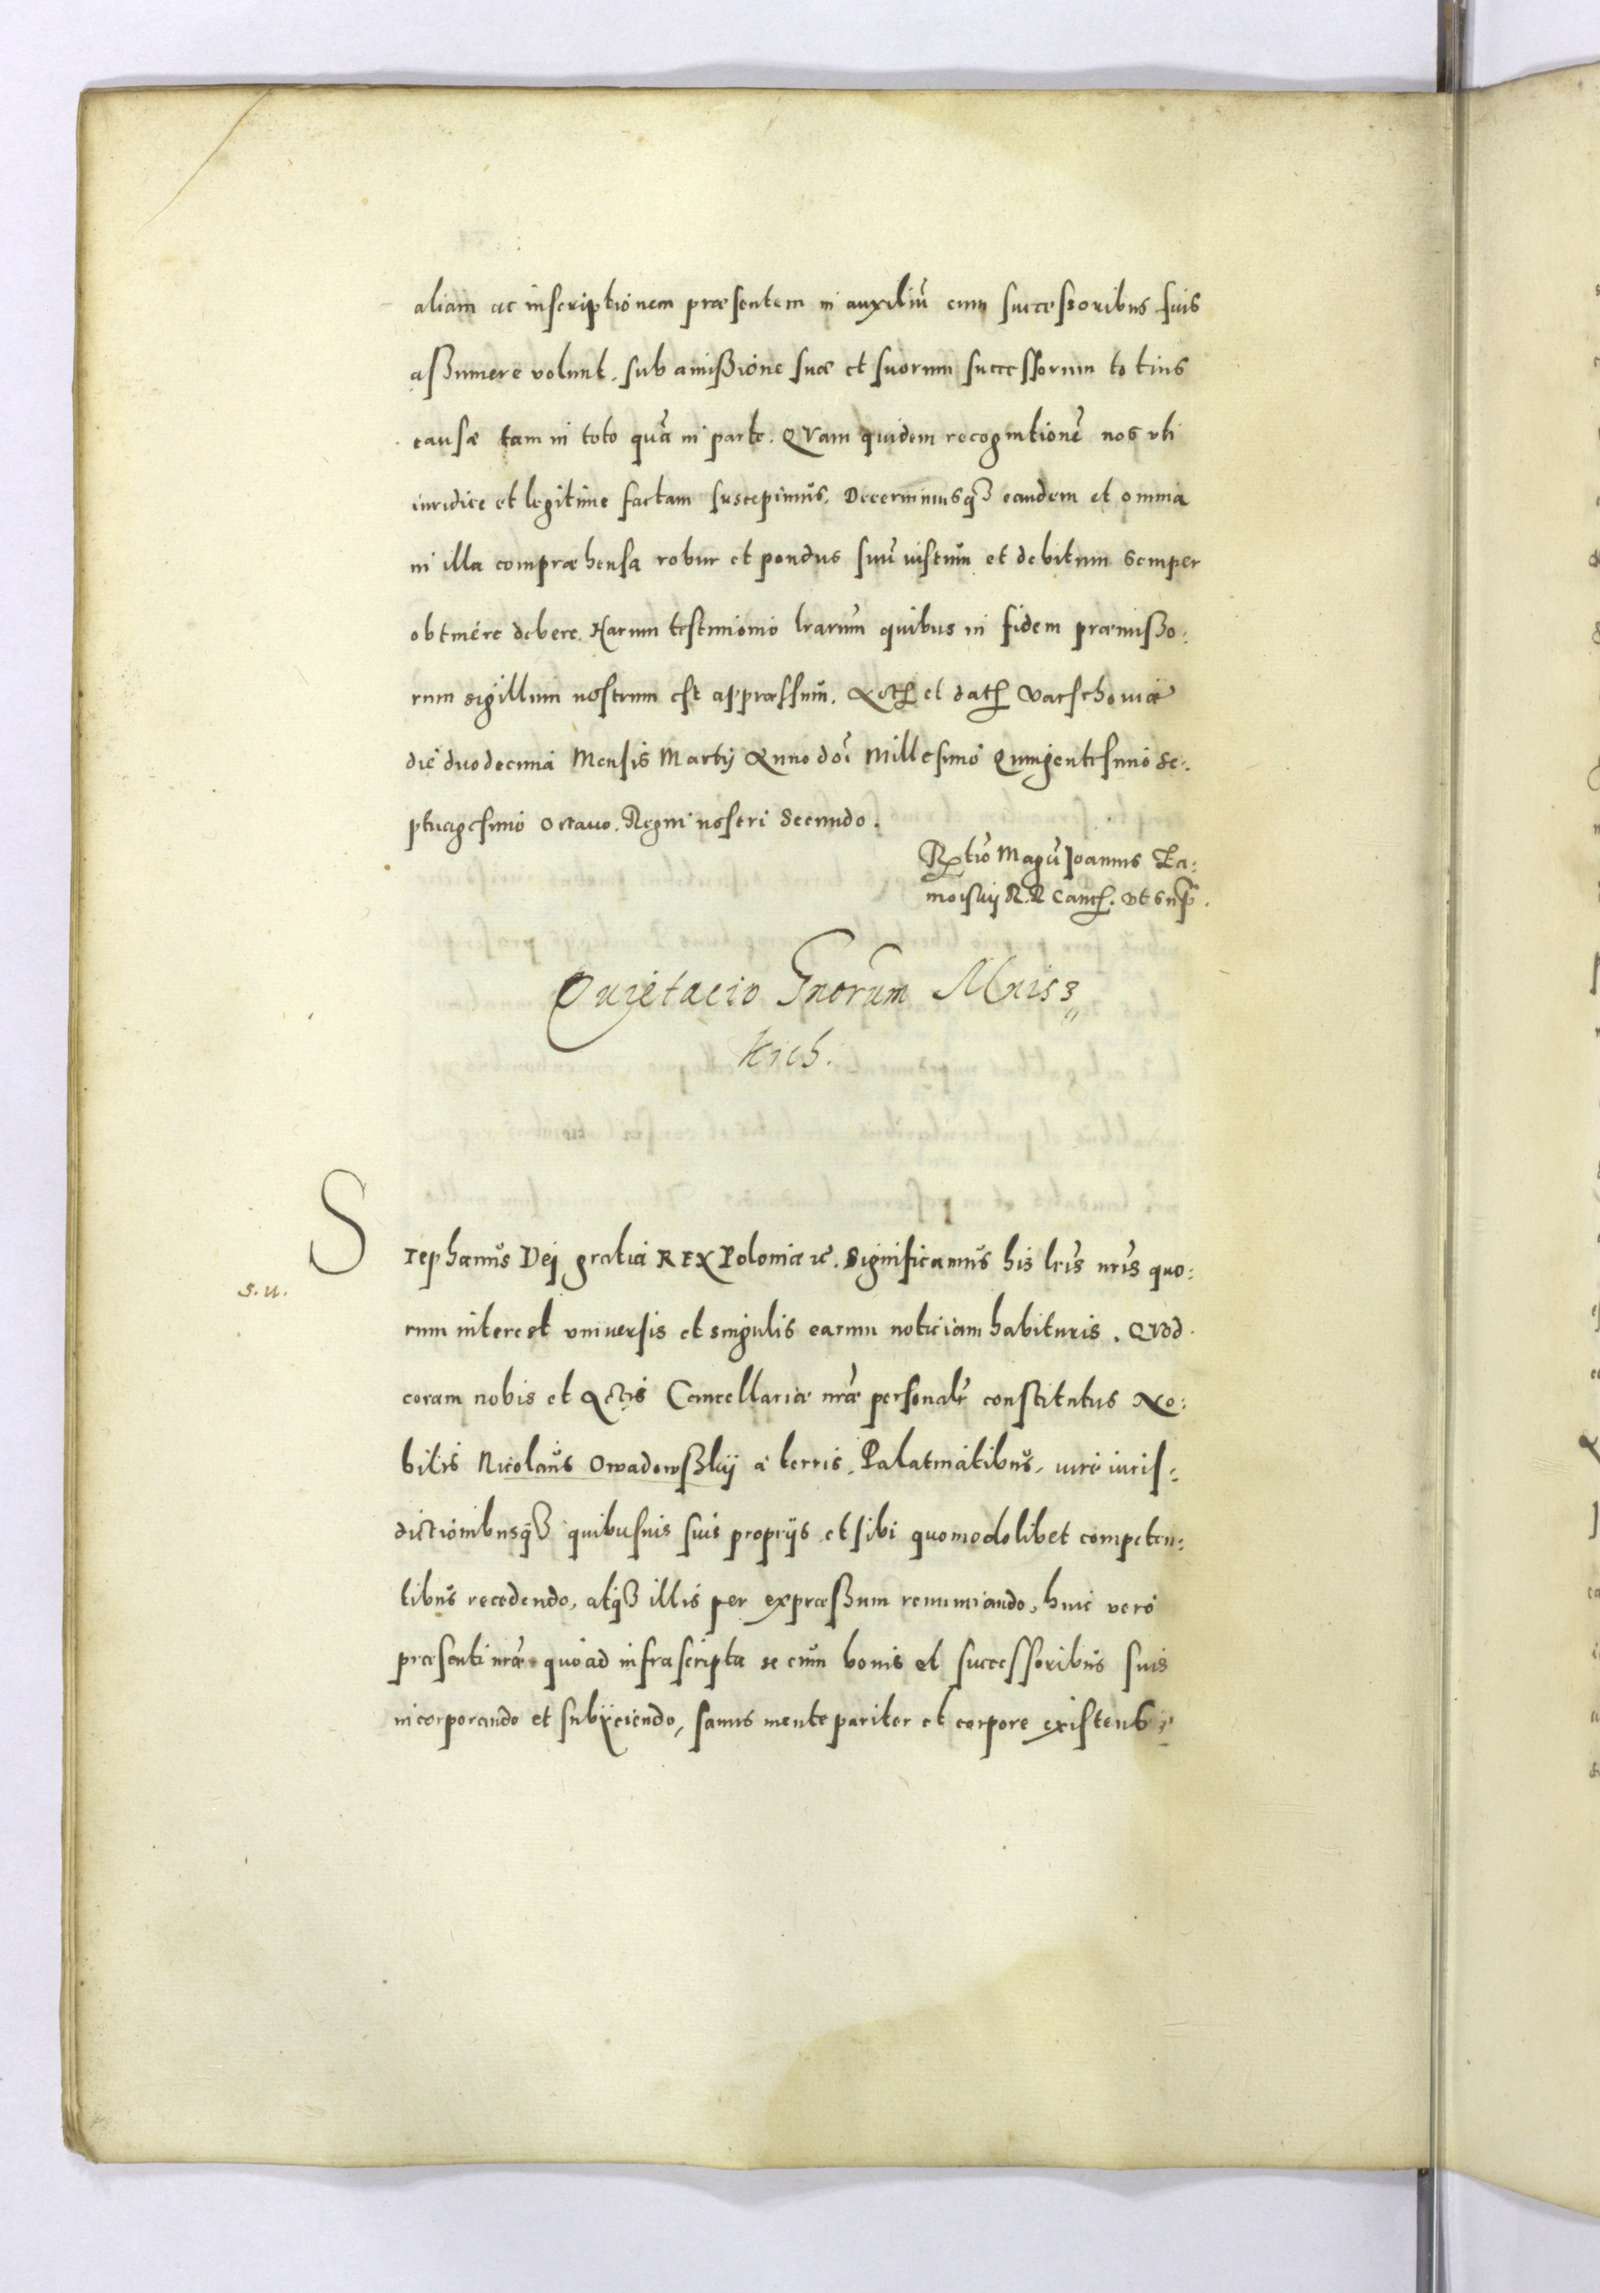 aliam ac inscriptionem præsentem in auxiliū cum successoribus suis
aßumere volunt, sub amißione suæ et suorum successorum totius
causæ tam in toto quā in parte. QVam quidem recognitionē nos vti
iuridice et legitime factam suscepimus. Decernimusqʒ eandem et omnia
in illa compræhensa robur et pondus suū iustum et debitum semper
obtinére debere. Harum testimonio lrarum quibus in fidem præmißo:
rum sigillum nostrum est appræssum. Act et dat Varschoviæ
die duodecima Mensis Martij Anno doi Millesimo Quingentesimo Se:
ptuagesimo octauo. Regni nostri Secundo.
Rtio Magci Joannis Za:
moiskij R. R Canc. vt sup.
Quietacio Gnorum Mnis3„
kich.
Stephanus Dej gratia REX Poloniæ ꝛc. Significamus his lris nris quo:
s. u.
rum interest vniuersis et singulis earum noticiam habituris. QVod
coram nobis et Actis Cancellariæ nræ personalr constitutus No:
bilis Nicolaus Owadowßkij á terris, Palatinatibus, iure iuris:
dictionibusqʒ quibusuis suis proprijs et sibi quomodolibet competen:
tibus recedendo, atqʒ illis per expræßum renunciando, huic veró
præsenti nræ quoad infrascripta se cum bonis et successoribus suis
incorporando et subijciendo, sanus mente pariter et corpore existens